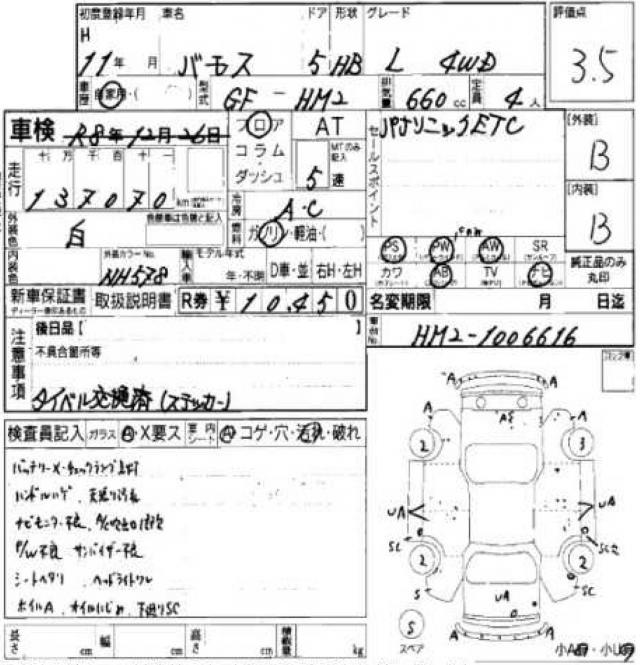 初度登録年月 車名 ドア 形状 グレード 評価点
H 11年 月 バモス 5 HB L 4WD 3.5
車歴 自家用・( ) 型式 GF-HM2 排気量 660cc 定員 4人
車検 R8年12月26日 フロア AT セールスポイント JPJソニックETC [外装] B
走行 十 万 千 百 十 一 コラム・ MTのみ記入
137070km ダッシュ 5速 [内装] B
冷房 A・C
外装色 白 色替車は色替と記入 燃料 ガソリン・軽油・( )
PS PW AW SR
内装色 外装カラーNo. NH578 輸入車 モデル年式 年・不明 D車・並 右H・左H カワ AB TV ナビ 純正品のみ丸印
新車保証書 取扱説明書 R券 ¥10,450 名変期限 月 日迄
車台No. HM2-1006616
注意事項 後日品【
不具合箇所等
タイベル交換済(ステッカー)
検査員記入 ガラス A・X要ス 車内シート A コゲ・穴・汚れ・破れ
バッテリーX・チェックランプ点灯
ハンドルハゲ
ナビモニター不良
P/W不良 サンバイザー不良
シートヘタリ ヘッドライトワレ
ホイルA 下廻りSC
長さ cm 幅 cm 高さ cm 積載量 kg
A A
A A
AE
2 3
UA UA
SC
2 2
S SC
UA
S スペア
A A